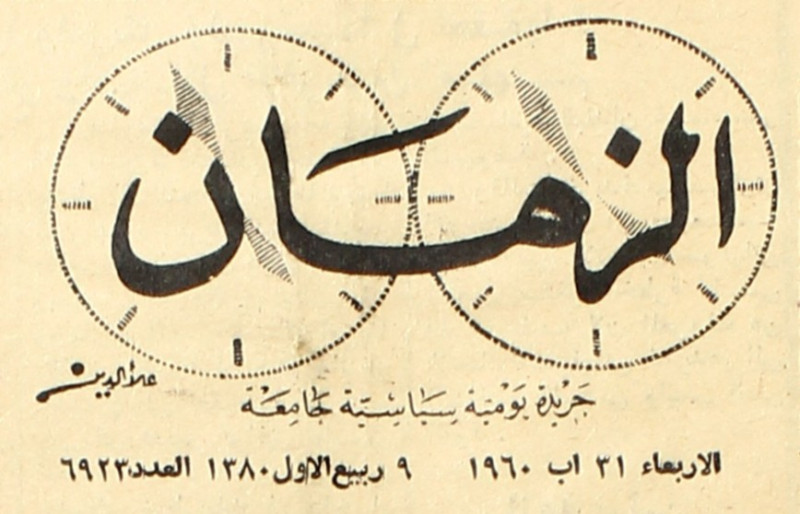 الزمان
علاءالدين
جريدة يومية سياسية جامعة
الاربعاء ٣١ اب ١٩٦٠ ٩ ربيع الاول ١٣٨٠ العدد ٦٩٢٣